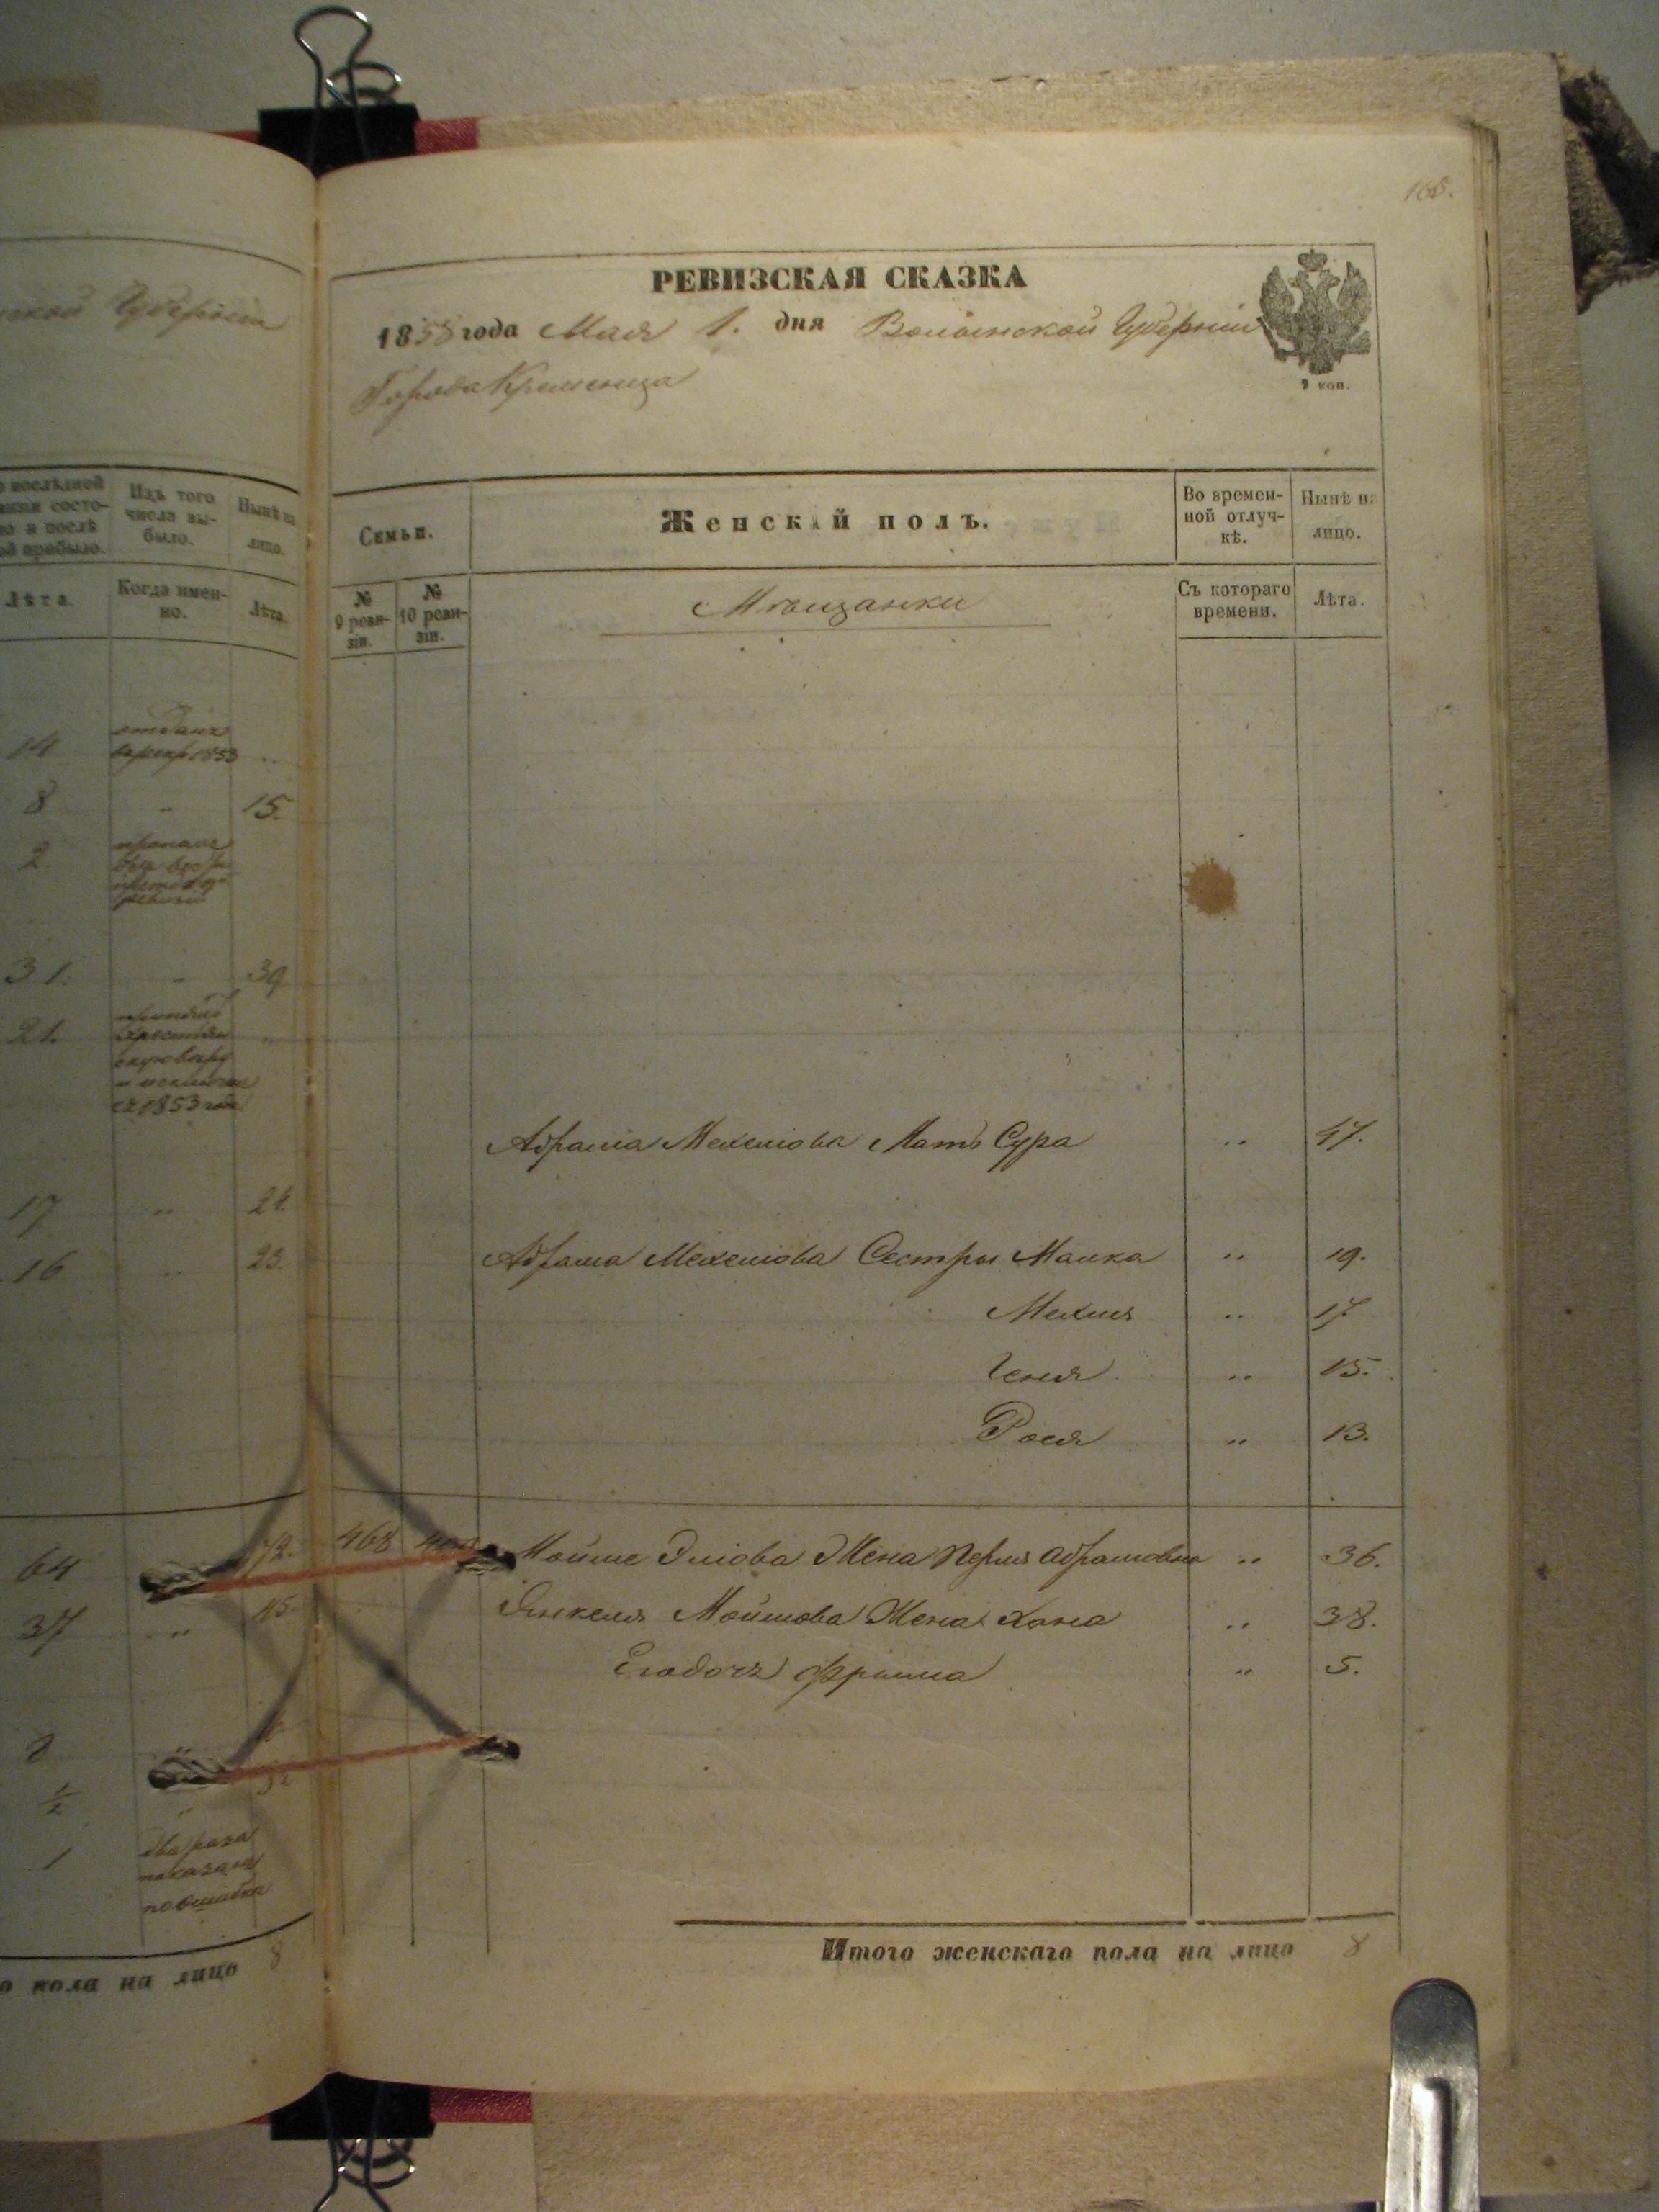 Губерніи
о последней
ревизіи состо-
яло и послѣ
той прибыло.
Изъ того
числа вы-
было.
Нынѣ на
лицо.
Лѣта.
Когда имен-
но.
Лѣта.
14
отданъ
1853
8
15.
2.
31.
39
21.
съ 1853 года
17
24.
16
23.
64
72.
37
45.
1/2
1
два раза
показанъ
по ошибке
о пола на лицо 8
168.
РЕВИЗСКАЯ СКАЗКА
1858 года Мая 1. дня Волынской Губерніи
2 коп.
Города Кременца
Семьи.
Женскій полъ.
Во времен-
ной отлуч-
кѣ.
Нынѣ на
лицо.
№
9 реви-
зіи.
№
10 реви-
зіи.
Мѣщанки
Съ котораго
времени.
Лѣта.
Абрама Мехелiова Мать Сура " 47.
Абрама Мехелiова Сестры Малка " 19.
Мехля " 17
Геня " 15.
Рося " 13.
468 Мойше Элiова Жена Перля Абрамовна " 36.
Янкеля Мойшова Жена Хана " 38.
Егодочь Фрыма " 5.
Итого женскаго пола на лицо 8